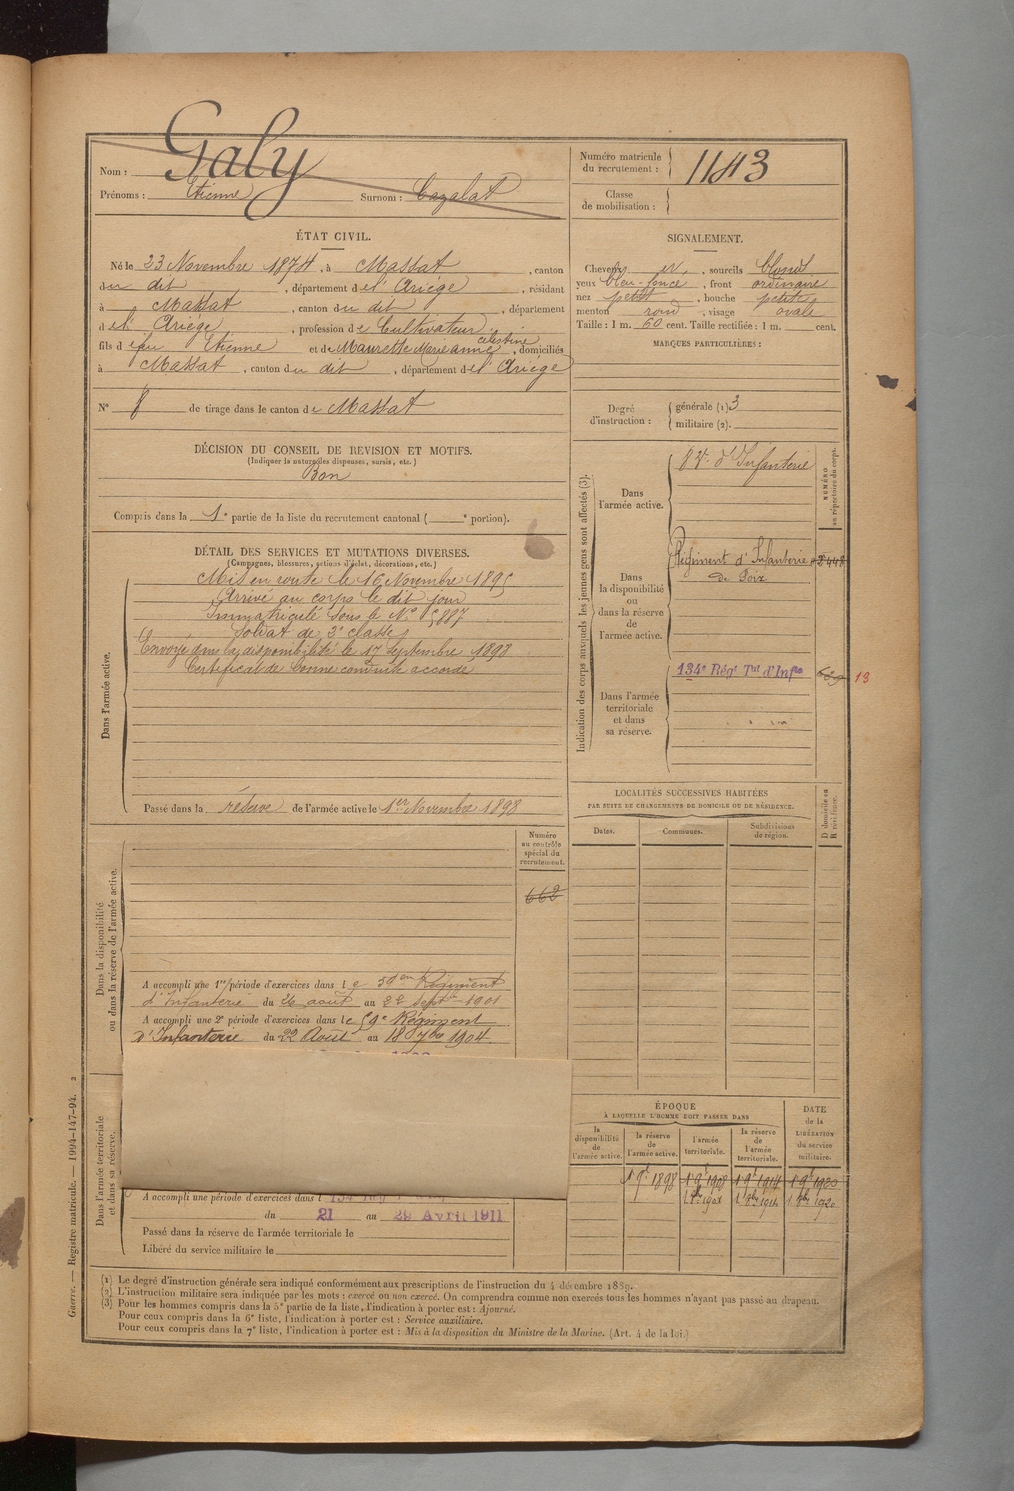 Nom : Galy
Prénoms : Etienne Surnom : Cazalat
Numéro matricule du recrutement : 1143
Classe de mobilisation :
ÉTAT CIVIL.
Né le 23 Novembre 1874, à Massat, canton
du dit, département de l'Ariège, résidant
à Massat, canton du dit, département
de l'Ariège, profession de Cultivateur
fils de feu Etienne et de Maurette Marie anne célestine, domiciliés
à Massat, canton du dit, département de l'Ariège
N° 8 de tirage dans le canton de Massat
SIGNALEMENT.
Cheveux, sourcils blonds
yeux bleu-foncé, front ordinaire
nez petit, bouche petite
menton rond, visage ovale
Taille : 1 m. 60 cent. Taille rectifiée : 1 m. cent.
MARQUES PARTICULIÈRES :
Degré d'instruction :
générale (1) 3
militaire (2).
DÉCISION DU CONSEIL DE REVISION ET MOTIFS.
(Indiquer la nature des dispenses, sursis, etc.)
Bon
Compris dans la 1e partie de la liste du recrutement cantonal ( e portion).
DÉTAIL DES SERVICES ET MUTATIONS DIVERSES.
(Campagnes, blessures, actions d'éclat, décorations, etc.)
Dans l'armée active.
Mis en route le 16 Novembre 1895
Arrivé au corps le dit jour
Immatriculé sous le N° 5887
Soldat de 2e classe
Envoyé dans la disponibilité le 17 septembre 1898
Certificat de bonne conduite accordé
Passé dans la réserve de l'armée active le 1er Novembre 1898
Indication des corps auxquels les jeunes gens sont affectés (3).
NUMÉRO au répertoire du corps.
Dans l'armée active.
d'Infanterie
Dans la disponibilité ou dans la réserve de l'armée active.
Régiment d'Infanterie
de Foix
Dans l'armée territoriale et dans sa réserve.
134e Régt Tal d'Infie
13
LOCALITÉS SUCCESSIVES HABITÉES
PAR SUITE DE CHANGEMENTS DE DOMICILE OU DE RÉSIDENCE.
D domicile ou R résidence.
Dates. Communes. Subdivisions de région.
Numéro au contrôle spécial du recrutement.
662
Dans la disponibilité ou dans la réserve de l'armée active.
A accompli une 1re période d'exercices dans le 59eme Régiment
d'Infanterie du 26 août au 22 Septbre 1901
A accompli une 2e période d'exercices dans le 59e Régiment
d'Infanterie du 22 Août au 18 7bre 1904
Dans l'armée territoriale et dans sa réserve.
A accompli une période d'exercices dans l
du 21 au 29 Avril 1911
Passé dans la réserve de l'armée territoriale le
Libéré du service militaire le
ÉPOQUE
À LAQUELLE L'HOMME DOIT PASSER DANS
DATE de la LIBÉRATION du service militaire.
la disponibilité de l'armée active.
la réserve de l'armée active.
l'armée territoriale.
la réserve de l'armée territoriale.
1 9e 1898 1 9e 1908 1 9e 1914 1 9e 1920
(1) Le degré d'instruction générale sera indiqué conformément aux prescriptions de l'instruction du 4 décembre 1889.
(2) L'instruction militaire sera indiquée par les mots : exercé ou non exercé. On comprendra comme non exercés tous les hommes n'ayant pas passé au drapeau.
(3) Pour les hommes compris dans la 5e partie de la liste, l'indication à porter est : Ajourné.
Pour ceux compris dans la 6e liste, l'indication à porter est : Service auxiliaire.
Pour ceux compris dans la 7e liste, l'indication à porter est : Mis à la disposition du Ministre de la Marine. (Art. 4 de la loi.)
Guerre. — Registre matricule. — 1994-147-94. 2